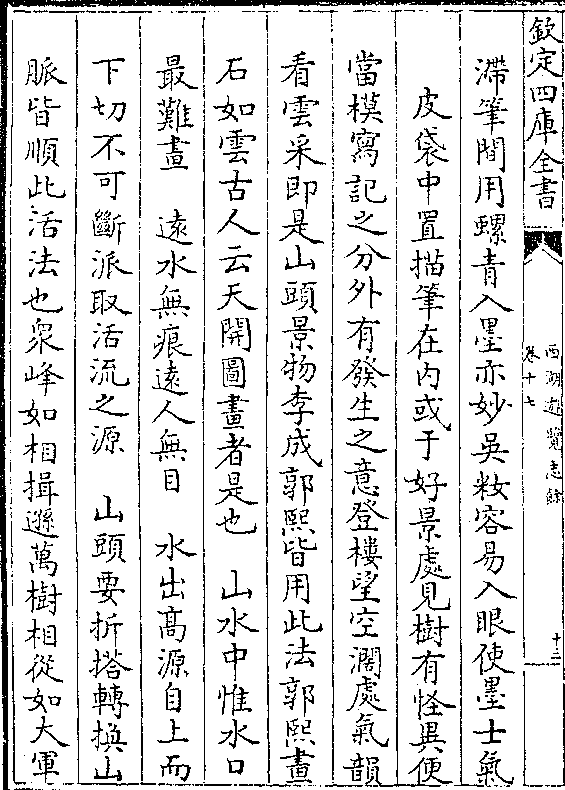 欽定四庫全書
西湖遊覽志餘
卷十七
十三
滯筆間用螺青入墨亦妙吳粧容易入眼使墨士氣
皮袋中置描筆在内或于好景處見樹有怪異便
當模寫記之分外有發生之意登樓望空濶處氣韻
看雲采即是山頭景物李成郭熙皆用此法郭熙畫
石如雲古人云天開圖畫者是也 山水中惟水口
最難畫 遠水無痕遠人無目 水出髙源自上而
下切不可斷派取活流之源 山頭要折搭轉換山
脈皆順此活法也衆峰如相揖遜萬樹相從如大軍